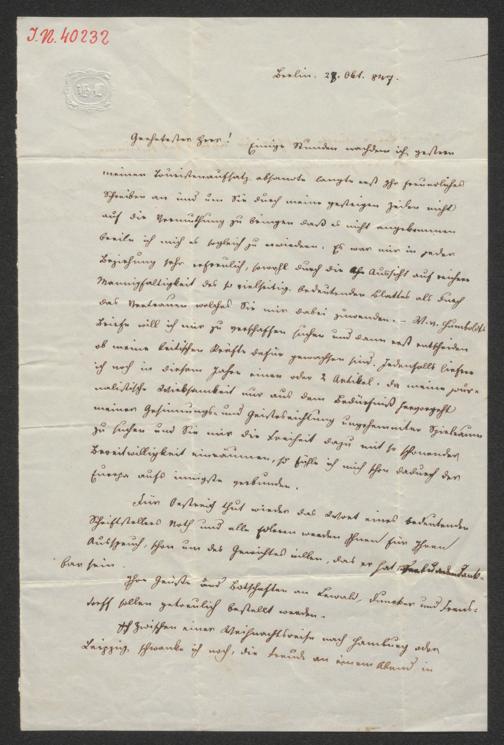 I.N. 40232
Berlin. 28. Okt. 847.
Geehrtester Herr! Einige Stunden nachdem ich gestern
meinen Touristenaufsatz absandte langte erst Ihr freundliches
Schreiben an und um Sie durch meine gestrigen Zeilen nicht
auf die Vermuthung zu bringen daß es nicht angekommen
beeile ich mich es sogleich zu erwiedern. Es war mir in jeder
Beziehung sehr erfreulich, sowohl durch die Aussicht auf reichere
Mannigfaltigkeit des so vielseitig bedeutenden Blattes als durch
das Vertrauen welches Sie mir dabei zuwenden. – W. v. Humboldts
Briefe will ich mir zu verschaffen suchen und dann erst entscheiden
ob meine kritischen Kräfte dafür gewachsen sind. Jedenfalls liefere
ich noch in diesem Jahre einen oder 2 Artikel. Da meine jour-
nalistische Wirksamkeit nur aus dem Bedürfniß hervorgeht
meiner Gesinnungs und Geistesrichtung ungehemmten Spielraum
zu suchen und Sie mir die Freiheit dazu mit so schonender
Bereitwilligkeit einräumen, so fühle ich mich schon dadurch der
Europa aufs innigste verbunden.
Für Oestreich thut wieder das Wort eines bedeutenden
Schriftstellers Noth und alle Edleren werden Ihnen für Ihren
Ausspruch, schon um des Gewichtes willen, das er hat, dank-
bar sein.
Ihre Grüße und Botschaften an Lewald, Duncker und
sollen getreulich bestellt werden.
Zwischen einer Weihnachtsreise nach Hamburg oder
Leipzig, schwanke ich noch, die Freude an einem Abend in